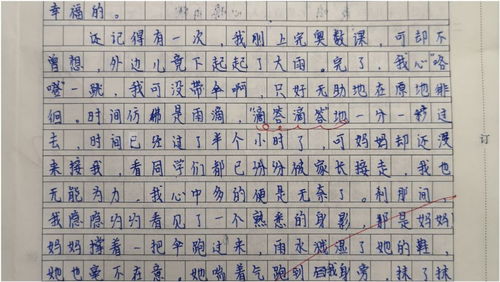 幸福的。
还记得有一次，我刚上完奥数课，可却不
曾想，外边儿竟下起了大雨。完了，我心“咯
噔”一跳，我可没带伞啊，只好无助地在原地徘
徊。时间仿佛是雨滴，“滴答滴答”地一分一秒过
去，时间已经过了半个小时了，可妈妈却还没
来接我，看同学们都已份份被家长接走，我也
无能为力，我心中多的便是无奈了。刹那间，
我隐隐约约看见了一个熟悉的身影，那是妈妈！
妈妈撑着一把伞跑过来，雨水溅湿了她的鞋，
她也毫不在意，她喘着气跑到我身旁，抹了抹
订